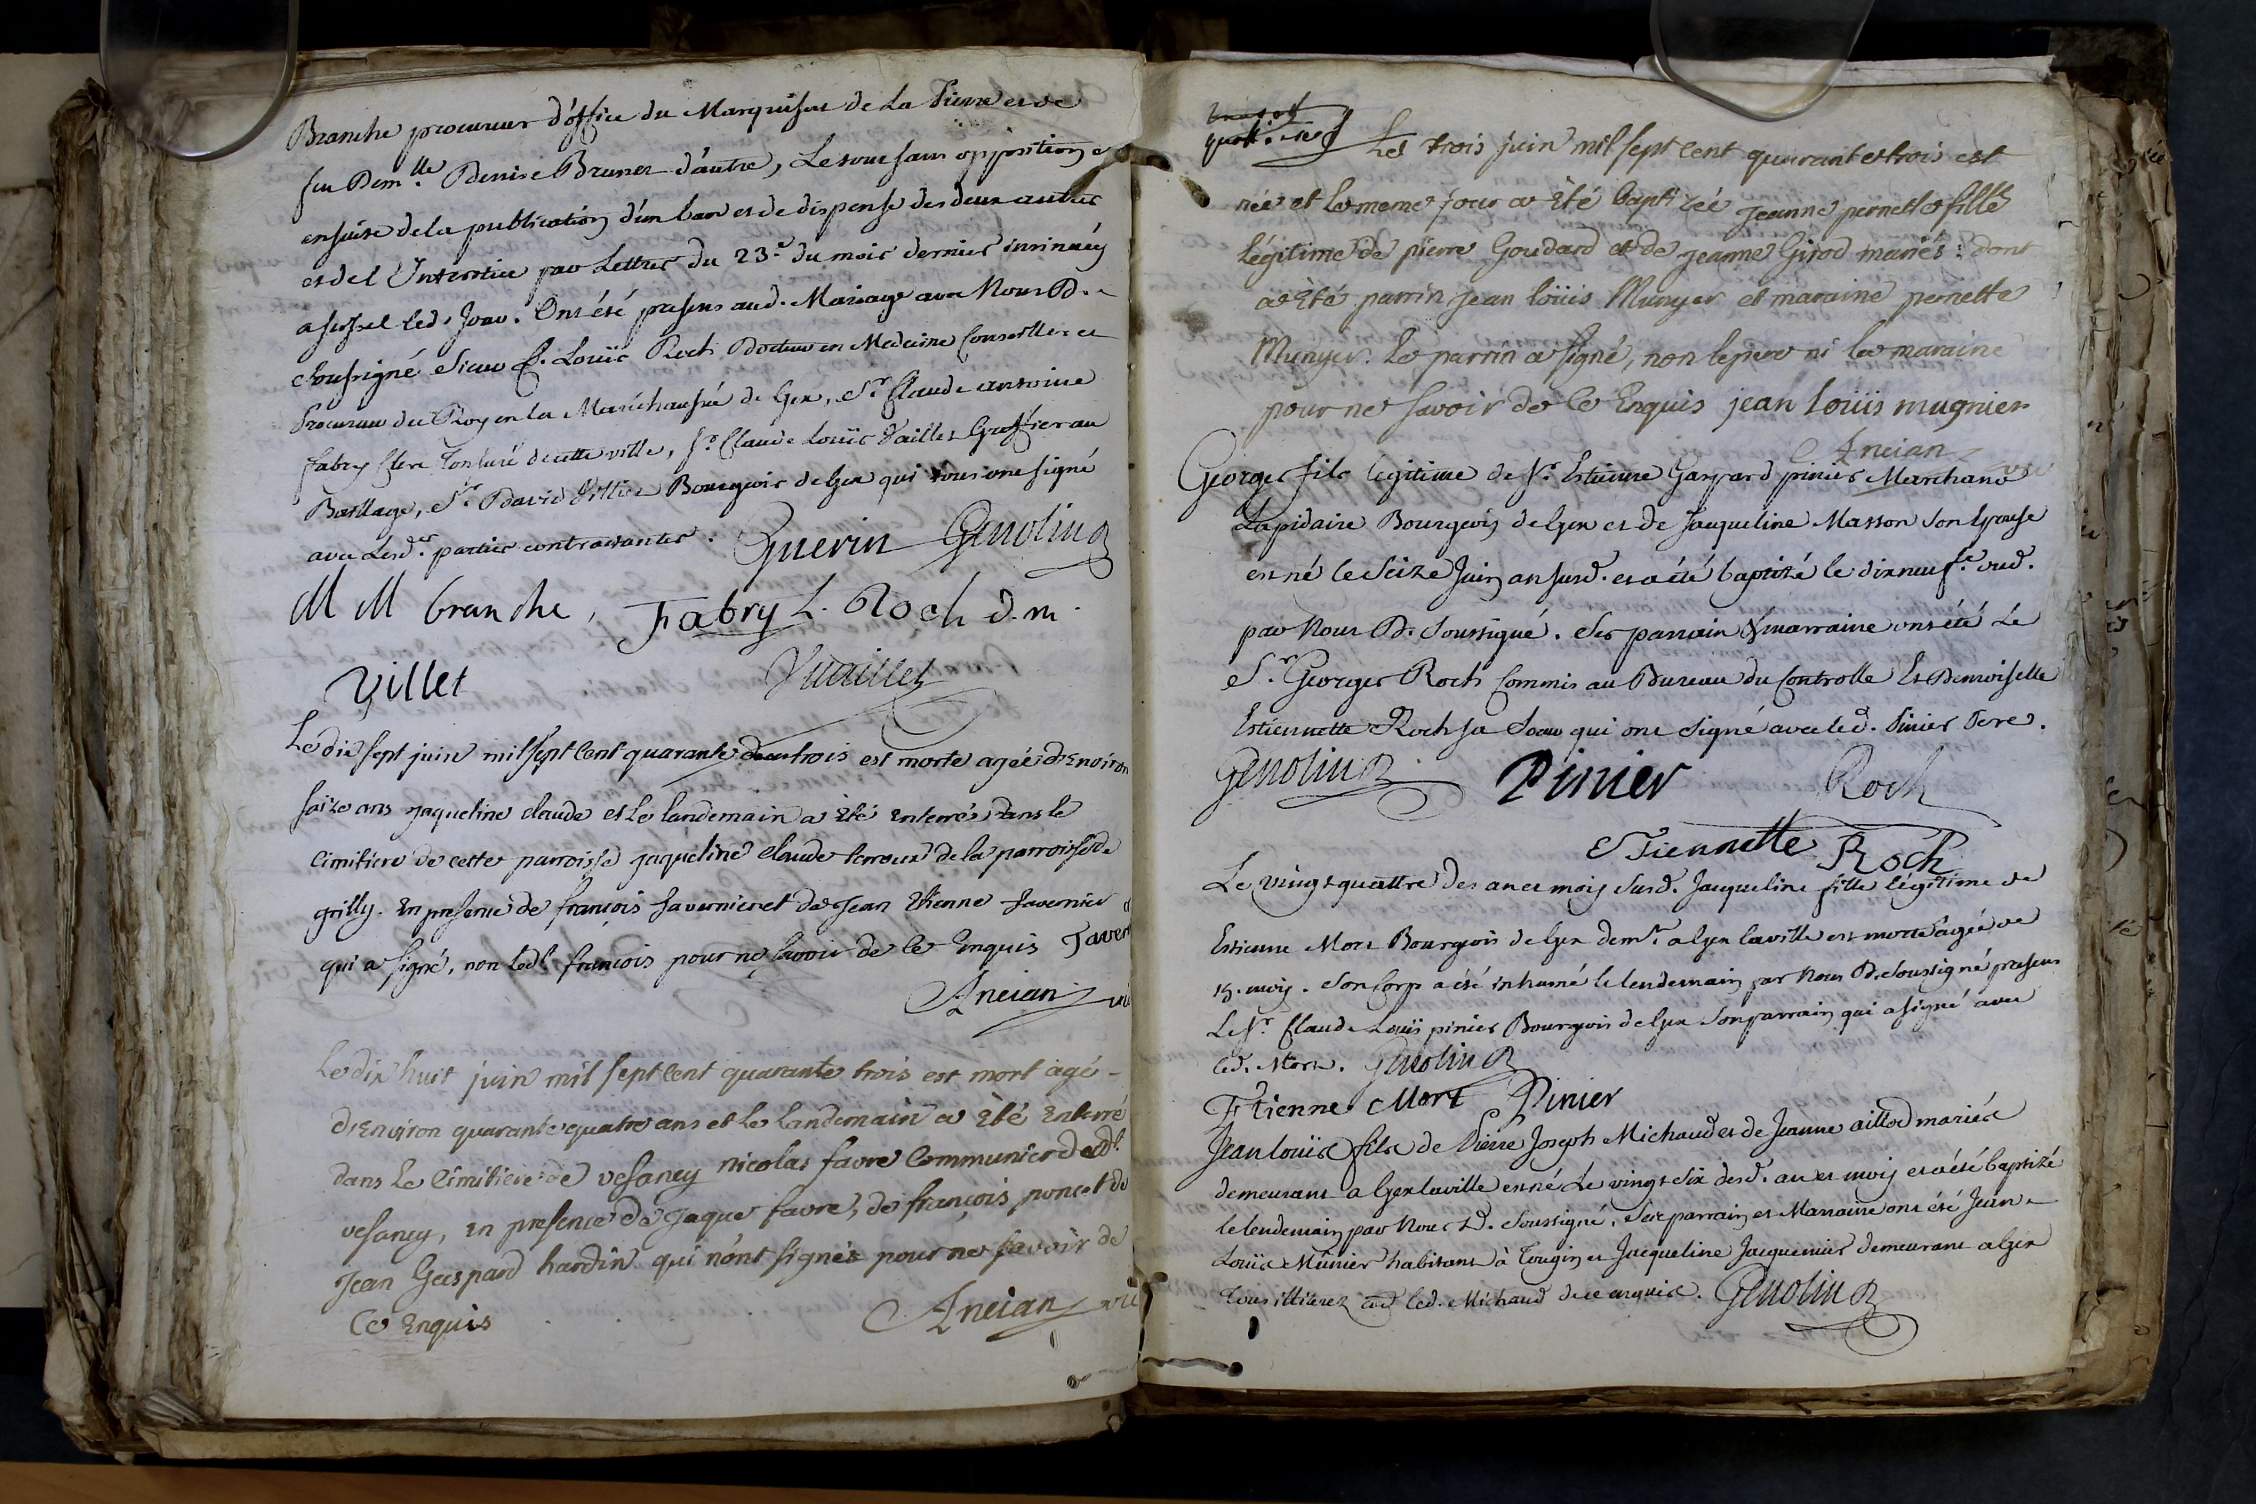 Branche procureur d'office du Marquisat de La Pierre et de
feu Dem.lle Denise Brunet d'autre, Le tout sans opposition et
ensuite de la publication d'un ban et de dispense des deux autres
et de l'Interstice par Lettres du 23.e du mois dernier insinuées
a led. Jour. Ont été presens aud. Mariage avec Nous
soussigné Sieur Louis Roch Docteur en Medecine Conseiller et
Procureur du Roy en la Maréchaussée de Gex, Sr. Claude antoine
fabry Clerc Tonsuré de cette ville, Sr. Claude Louis Vaillet Greffier au
Baillage, Sr. David Villet Bourgeois de Gex qui tous ont signé
avec Lesd.es parties contractantes. Guerin Genolin
M M branche, Fabry L. Roch d.m.
Villet Vuaillet
Le dix sept juin mil sept cent quarante trois est morte agée d'Environ
saize ans jaqueline claude et Le landemain a Eté enterrée dans le
cimitiere de cette parroisse jaqueline claude de la parroisse de
grilly. En presence de françois tavernier et de Jean Etienne tavernier
qui a signé, non led.t françois pour ne savoir de ce Enquis Taver
Ancian
Le dix huit juin mil sept cent quarante trois est mort agé
d'Environ quarante quatre ans et le landemain a Eté Enterré
dans le cimitiere de vesancy nicolas favre communier dud.t
vesancy, en presence de jaque favre, de françois poncet de
Jean Gaspard hardin qui n'ont signés pour ne savoir de
ce Enquis Ancian
Les trois juin mil sept cent quarante trois est
née et le meme jour a Eté baptizée jeanne pernette fille
légitime de pierre Goudard et de jeanne Girod mariés: dont
a Eté parrin jean loüis Munyer et maraine pernette
Munyer. Le parrin a signé, non le pere ni la maraine
pour ne savoir de ce Enquis jean loüis mugnier
Ancian
George fils legitime de Sr. Estienne Gaspard pinier Marchand
Lapidaire Bourgeois de Gex et de Jaqueline Masson son Epouse
est né le Seize Juin an susd. et a été baptizé le dixneuf.e dud.
par Nous soussigné. Ses parrain & marraine ont été Le
Sr. George Roch Commis au Bureau du Controlle Et Demoiselle
Estiennette Roch sa Soeur qui ont signé avec led. Pinier Pere.
Genolin Pinier Roch
Etiennette Roch
Le vingt quattre des an et mois susd. Jacqueline fille légitime de
Estienne Mort Bourgeois de Gex dem.t a Gex la ville est morte agée de
15. mois. Son Corp a été inhumé le lendemain par Nous soussigné presens
Le Sr. Claude Louis pinier Bourgeois de Gex son parrain qui a signé avec
led. Mort. Genolin
Etienne Mort Pinier
Jean louis fils de Pierre Joseph Michaud et de Jeanne aillod mariés
demeurant a Gex la ville est né Le vingt six desd. an et mois et a été baptizé
le lendemain par Nous soussigné. Ses parrain et Marraine ont été Jean
Louis Mûnier habitant à Tougin et Jacqueline Jacquemier demeurant a Gex
Tous illiterez led. Michaud de ce enquis. Genolin